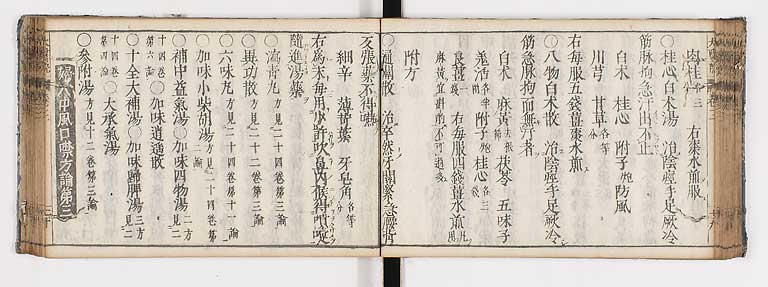 肉桂 各三分 右棗水煎服
〇桂心白朮湯 治陰痙手足厥冷
筋脉拘急汗出不止
白朮 桂心 附子炮 防風
川芎 甘草各等分
右每服五錢薑棗水煎
〇八物白朮散 治陰痙手足厥冷
筋急脉拘而無汗者
白朮 麻黄去節 茯苓 五味子
羌活各半 附子炮 桂心各三
良薑 右每服四錢薑水煎
附方
〇通關散 治卒然牙關緊急
及張藥不得嚥
細辛 薄荷葉 牙皂角各等分
右爲末每用少許吹鼻內候得嚏
隨進湯藥
〇瀉青丸 方見二十四卷第三論
〇異功散 方見二十四卷第三論
〇六味丸 方見二十四卷第十一論
〇加味小柴胡湯 方見二十四卷第二論
〇補中益氣湯 〇加味四物湯 二方見二
十四卷第六論 〇加味逍遥散
〇十全大補湯 〇加味歸脾湯 三方見二
十四卷第四論 〇大承氣湯
〇參附湯 方見十二卷第三論
婦人中風口噤方論第三